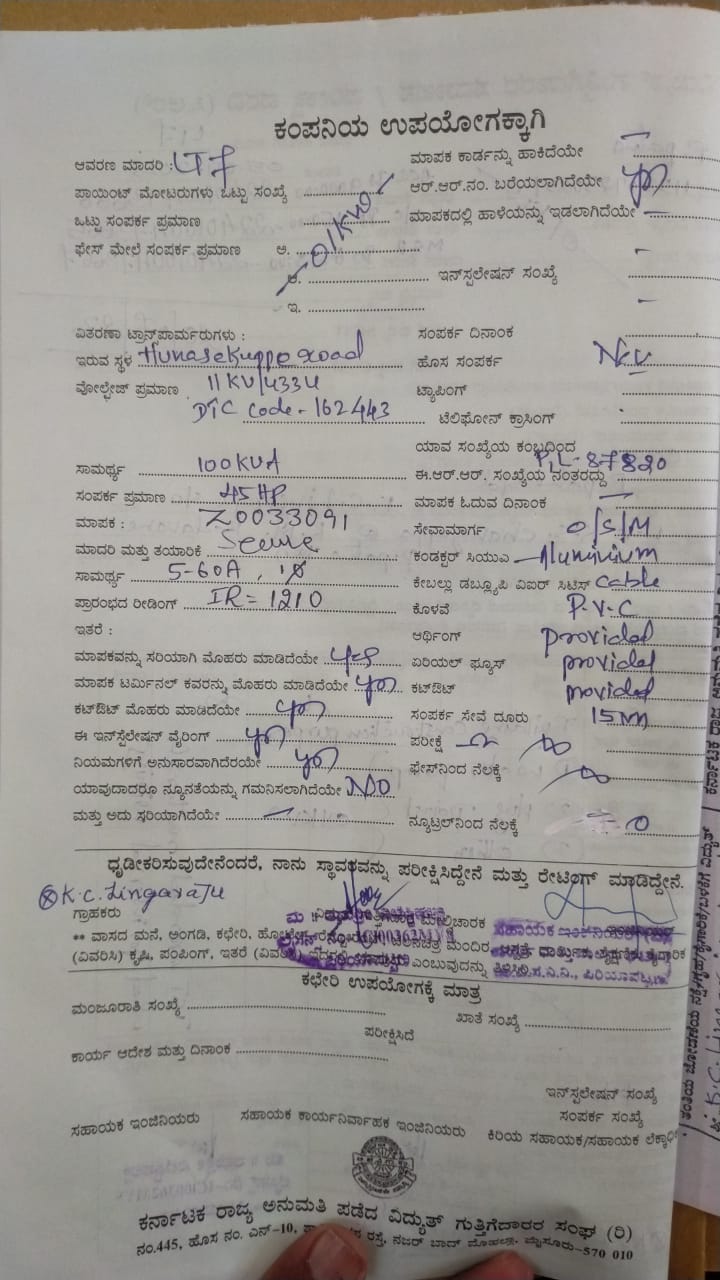 ಕಂಪನಿಯ ಉಪಯೋಗಕ್ಕಾಗಿ
ಆವರಣ ಮಾದರಿ :
ಮಾಪಕ ಕಾರ್ಡನ್ನು ಹಾಕಿದೆಯೇ
ಪಾಯಿಂಟ್ ಮೋಟರುಗಳು ಒಟ್ಟು ಸಂಖ್ಯೆ
ಆರ್.ಆರ್.ನಂ. ಬರೆಯಲಾಗಿದೆಯೇ yes
ಒಟ್ಟು ಸಂಪರ್ಕ ಪ್ರಮಾಣ
ಮಾಪಕದಲ್ಲಿ ಹಾಳೆಯನ್ನು ಇಡಲಾಗಿದೆಯೇ
ಫೇಸ್ ಮೇಲೆ ಸಂಪರ್ಕ ಪ್ರಮಾಣ ಅ.
ಆ. ಇನ್‌ಸ್ಟಲೇಷನ್ ಸಂಖ್ಯೆ
ಇ.
ವಿತರಣಾ ಟ್ರಾನ್ಸ್‌ಫಾರ್ಮರುಗಳು :
ಸಂಪರ್ಕ ದಿನಾಂಕ
ಇರುವ ಸ್ಥಳ Hunasekuppe road
ಹೊಸ ಸಂಪರ್ಕ New
ವೋಲ್ಟೇಜ್ ಪ್ರಮಾಣ 11KV/433V
ಟ್ಯಾಪಿಂಗ್
DTC code - 162443
ಟೆಲಿಫೋನ್ ಕ್ರಾಸಿಂಗ್
ಯಾವ ಸಂಖ್ಯೆಯ ಕಂಬದಿಂದ
ಸಾಮರ್ಥ್ಯ 100KVA
ಈ.ಆರ್.ಆರ್. ಸಂಖ್ಯೆಯ ನಂತರದ್ದು PL-87820
ಸಂಪರ್ಕ ಪ್ರಮಾಣ 45HP
ಮಾಪಕ ಓದುವ ದಿನಾಂಕ
ಮಾಪಕ : Z0033091
ಸೇವಾಮಾರ್ಗ O/S/M
ಮಾದರಿ ಮತ್ತು ತಯಾರಿಕೆ Secure
ಕಂಡಕ್ಟರ್ ಸಿಯುಎ Aluminium
ಸಾಮರ್ಥ್ಯ 5-60A, 1φ
ಕೇಬಲ್ಲು ಡಬ್ಲ್ಯೂಪಿ ವಿಐರ್ ಸಿಟಿಸ್ cable
ಪ್ರಾರಂಭದ ರೀಡಿಂಗ್ IR = 1210
ಕೊಳವೆ P.V.C
ಇತರೆ :
ಆರ್ಥಿಂಗ್ provided
ಮಾಪಕವನ್ನು ಸರಿಯಾಗಿ ಮೊಹರು ಮಾಡಿದೆಯೇ yes
ಏರಿಯಲ್ ಫ್ಯೂಸ್ provided
ಮಾಪಕ ಟರ್ಮಿನಲ್ ಕವರನ್ನು ಮೊಹರು ಮಾಡಿದೆಯೇ yes
ಕಟ್‌ಔಟ್ provided
ಕಟ್‌ಔಟ್ ಮೊಹರು ಮಾಡಿದೆಯೇ yes
ಸಂಪರ್ಕ ಸೇವೆ ದೂರು 15m
ಈ ಇನ್‌ಸ್ಟೆಲೇಷನ್ ವೈರಿಂಗ್ yes
ಪರೀಕ್ಷೆ Ω ∞
ನಿಯಮಗಳಿಗೆ ಅನುಸಾರವಾಗಿದೆರಯೇ yes
ಫೇಸ್‌ನಿಂದ ನೆಲಕ್ಕೆ ∞
ಯಾವುದಾದರೂ ನ್ಯೂನತೆಯನ್ನು ಗಮನಿಸಲಾಗಿದೆಯೇ NO
ಮತ್ತು ಅದು ಸರಿಯಾಗಿದೆಯೇ
ನ್ಯೂಟ್ರಲ್‌ನಿಂದ ನೆಲಕ್ಕೆ 0
ಧೃಡೀಕರಿಸುವುದೇನೆಂದರೆ, ನಾನು ಸ್ಥಾವರವನ್ನು ಪರೀಕ್ಷಿಸಿದ್ದೇನೆ ಮತ್ತು ರೇಟಿಂಗ್ ಮಾಡಿದ್ದೇನೆ.
K.C. Lingaraju
ಗ್ರಾಹಕರು
** ವಾಸದ ಮನೆ, ಅಂಗಡಿ, ಕಛೇರಿ, ಮಂದಿರ
(ವಿವರಿಸಿ) ಕೃಷಿ, ಪಂಪಿಂಗ್, ಇತರೆ ಎಂಬುವುದನ್ನು
ಕಛೇರಿ ಉಪಯೋಗಕ್ಕೆ ಮಾತ್ರ
ಮಂಜೂರಾತಿ ಸಂಖ್ಯೆ
ಖಾತೆ ಸಂಖ್ಯೆ
ಪರೀಕ್ಷಿಸಿದೆ
ಕಾರ್ಯ ಆದೇಶ ಮತ್ತು ದಿನಾಂಕ
ಇನ್‌ಸ್ಟಲೇಷನ್ ಸಂಖ್ಯೆ
ಸಂಪರ್ಕ ಸಂಖ್ಯೆ
ಸಹಾಯಕ ಇಂಜಿನಿಯರು ಸಹಾಯಕ ಕಾರ್ಯನಿರ್ವಾಹಕ ಇಂಜಿನಿಯರು ಕಿರಿಯ ಸಹಾಯಕ/ಸಹಾಯಕ
ಕರ್ನಾಟಕ ರಾಜ್ಯ ಅನುಮತಿ ಪಡೆದ ವಿದ್ಯುತ್ ಗುತ್ತಿಗೆದಾರರ ಸಂಘ (ರಿ)
ನಂ.445, ಹೊಸ ನಂ. ಎನ್-10, ರಸ್ತೆ, ನಜರ್ ಬಾದ್ ಮೊಹಲ್ಲಾ, ಮೈಸೂರು-570 010